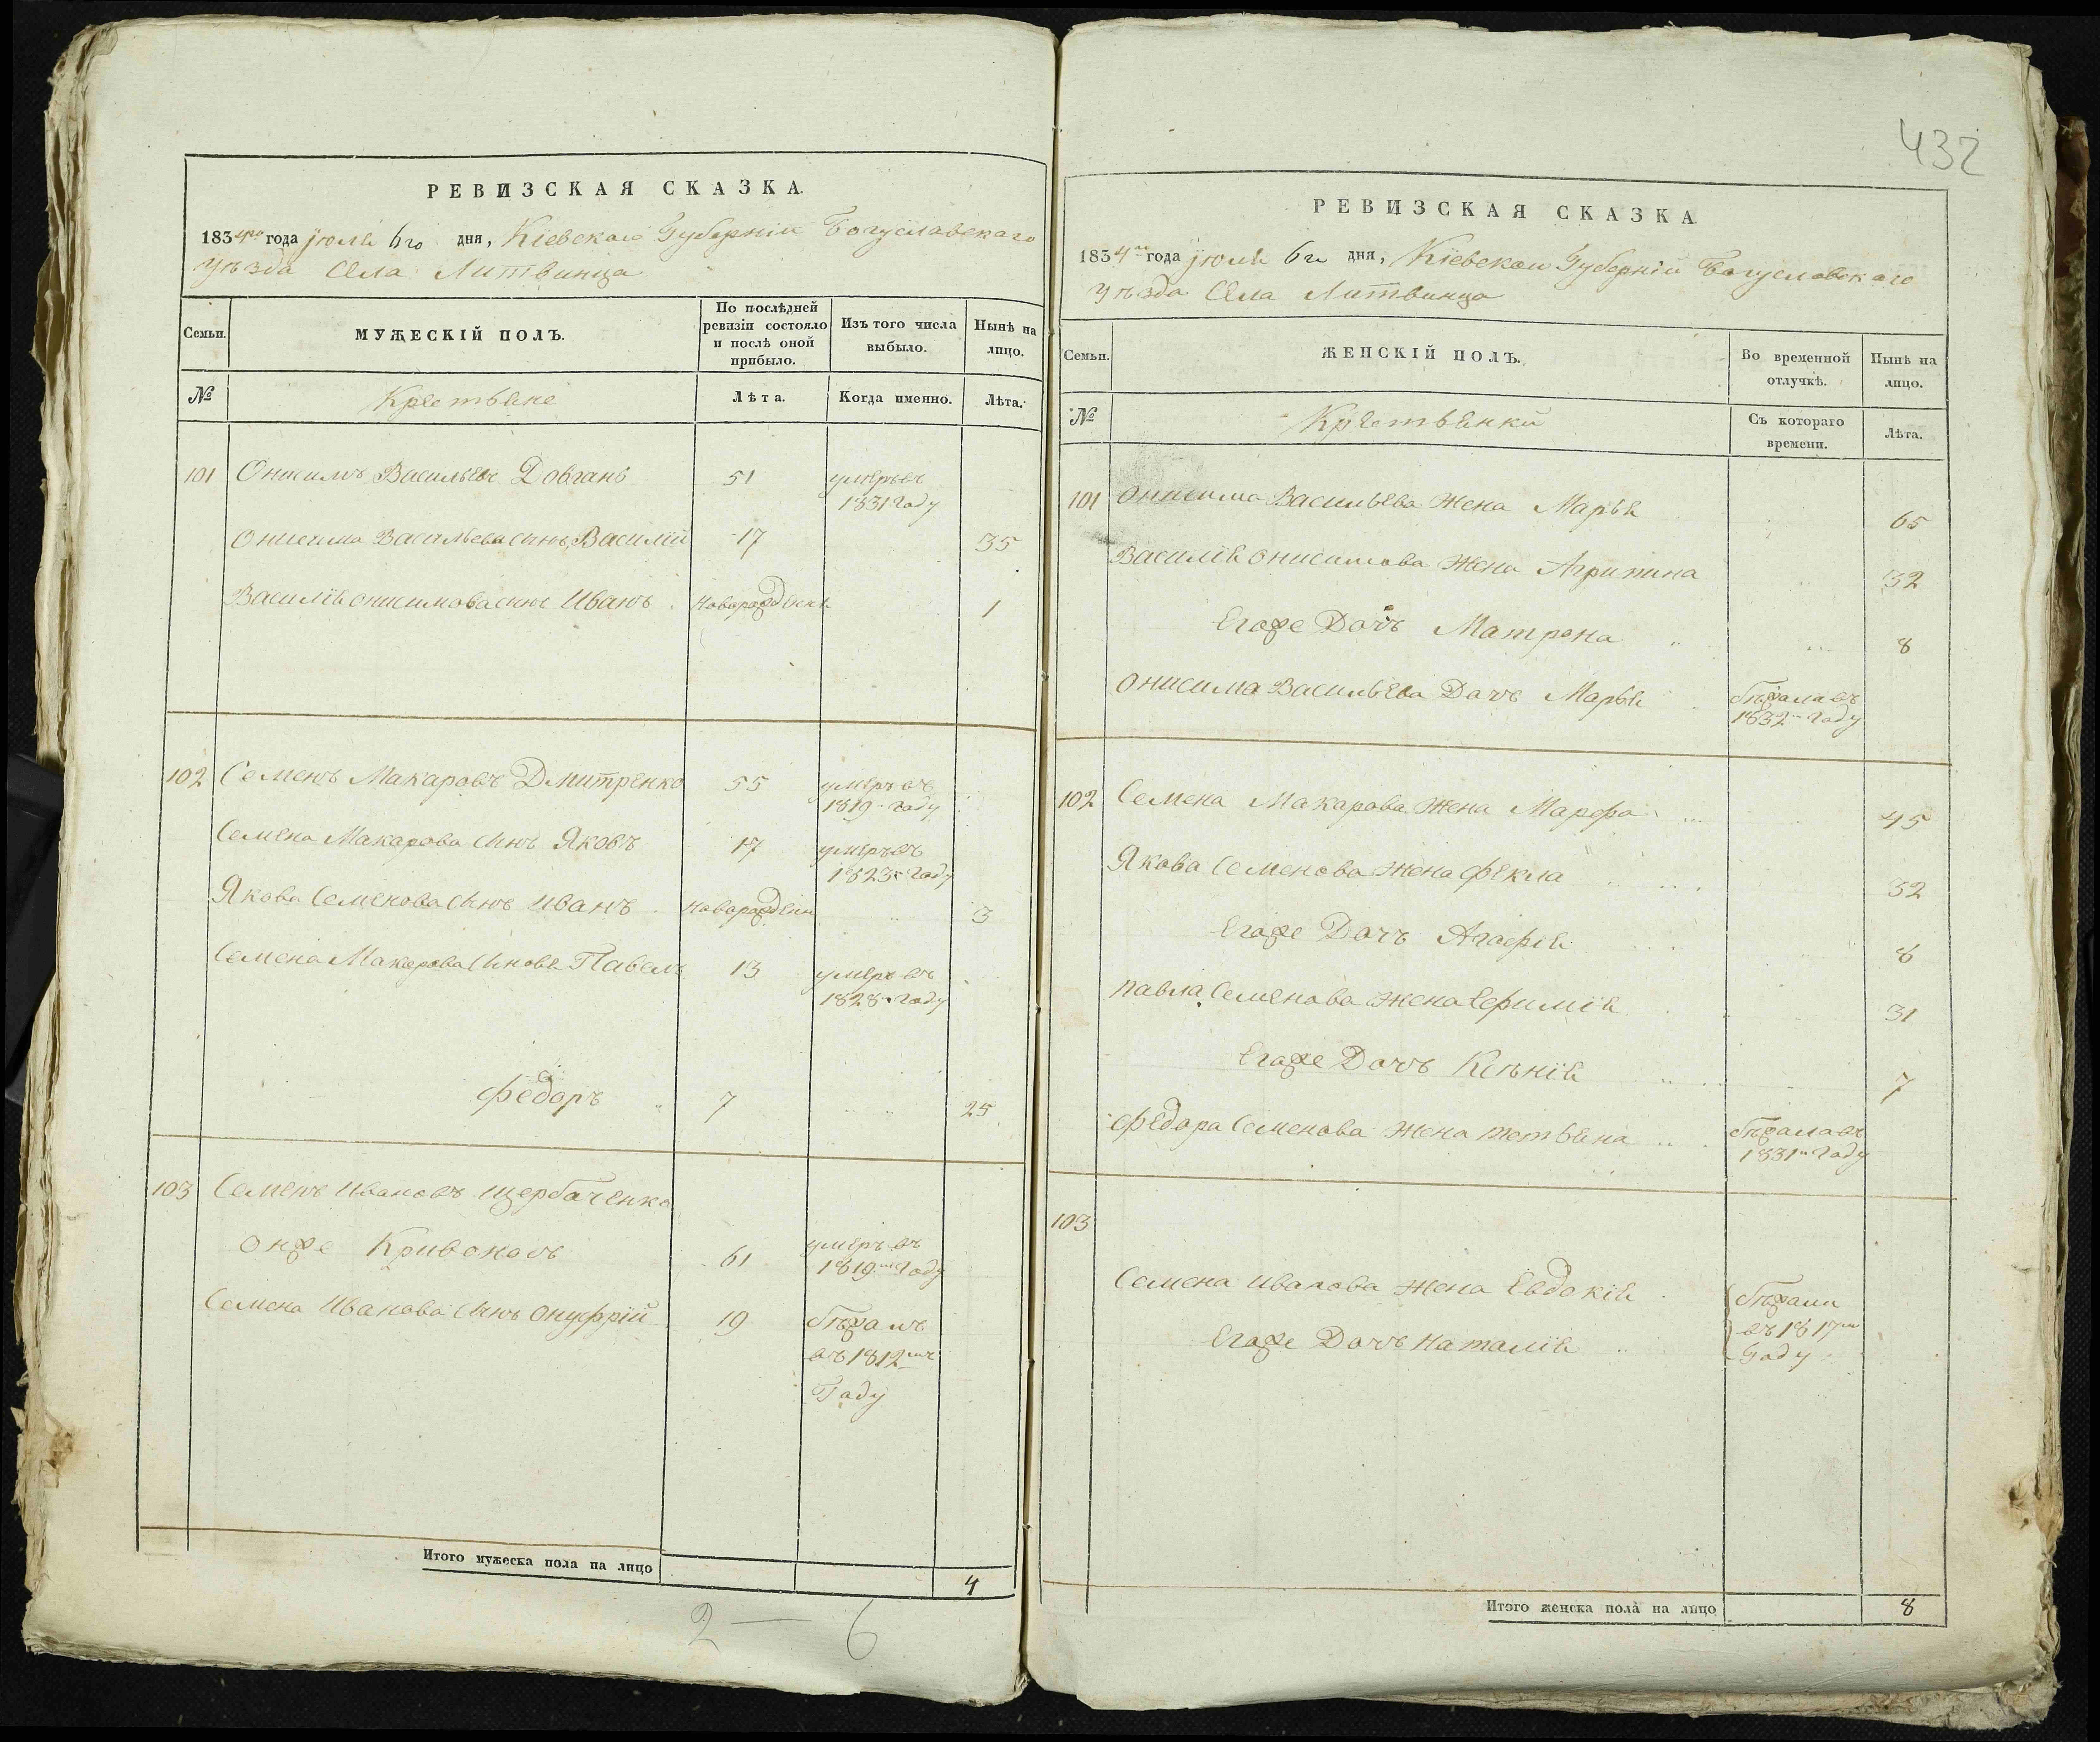 РЕВИЗСКАЯ СКАЗКА.
1834го года июля 6го дня, Кіевской Губерніи Богуславскаго
уѣзда Села Литвинца
Семьи. МУЖЕСКІЙ ПОЛЪ. По послѣдней ревизіи состояло и послѣ оной прибыло. Изъ того числа выбыло. Нынѣ на лицо.
№ Крестьяне Лѣта. Когда именно. Лѣта.
101 Онисимъ Васильевъ Довгань 51 умеръ въ
1831 году
Онисима Васильева сынъ Василій 17 35
Василія онисимова сынъ Иванъ новорожденъ 1
102 Семенъ Макаровъ Дмитренко 55 умеръ въ
1819 году
Семена Макарова Сынъ Яковъ 17 умеръ въ
1823 году
Якова Семенова Сынъ Иванъ новорожден 3
Семена Макарова Сыновья Павелъ 13 умеръ въ
1828 году
Федоръ 7 25
103 Семенъ Ивановъ Щербаченко
онже Кривоносъ 61 умеръ въ
1819 году
Семена Иванова Сынъ Онуфрій 19 бѣжалъ
въ 1812
Году
Итого мужеска пола на лицо 4
2 — 6
432
РЕВИЗСКАЯ СКАЗКА
1834 года июля 6го дня, Кіевской Губерніи Богуславскаго
уѣзда Села Литвинца
Семьи. ЖЕНСКІЙ ПОЛЪ. Во временной отлучкѣ. Нынѣ на лицо.
№ Крестьянки Съ котораго времени. Лѣта.
101 Онисима Васильева жена Марья 65
Василія онисимова жена Агрипина 32
Егоже Дочь Матрона 8
Онисима Васильева Дочь Марья бѣжала въ
1832 году
102 Семена Макарова жена Марфа 45
Якова Семенова жена Фекла 32
Егоже Дочь Агафія 8
Павла Семенова жена Ефимія 31
Егоже Дочь Ксѣнія 7
Федора Семенова жена тетьяна бѣжала въ
1831 году
103
Семена Иванова жена Евдокія бѣжали
въ 1817
Егоже Дочь Наталія году
Итого женска пола на лицо 8